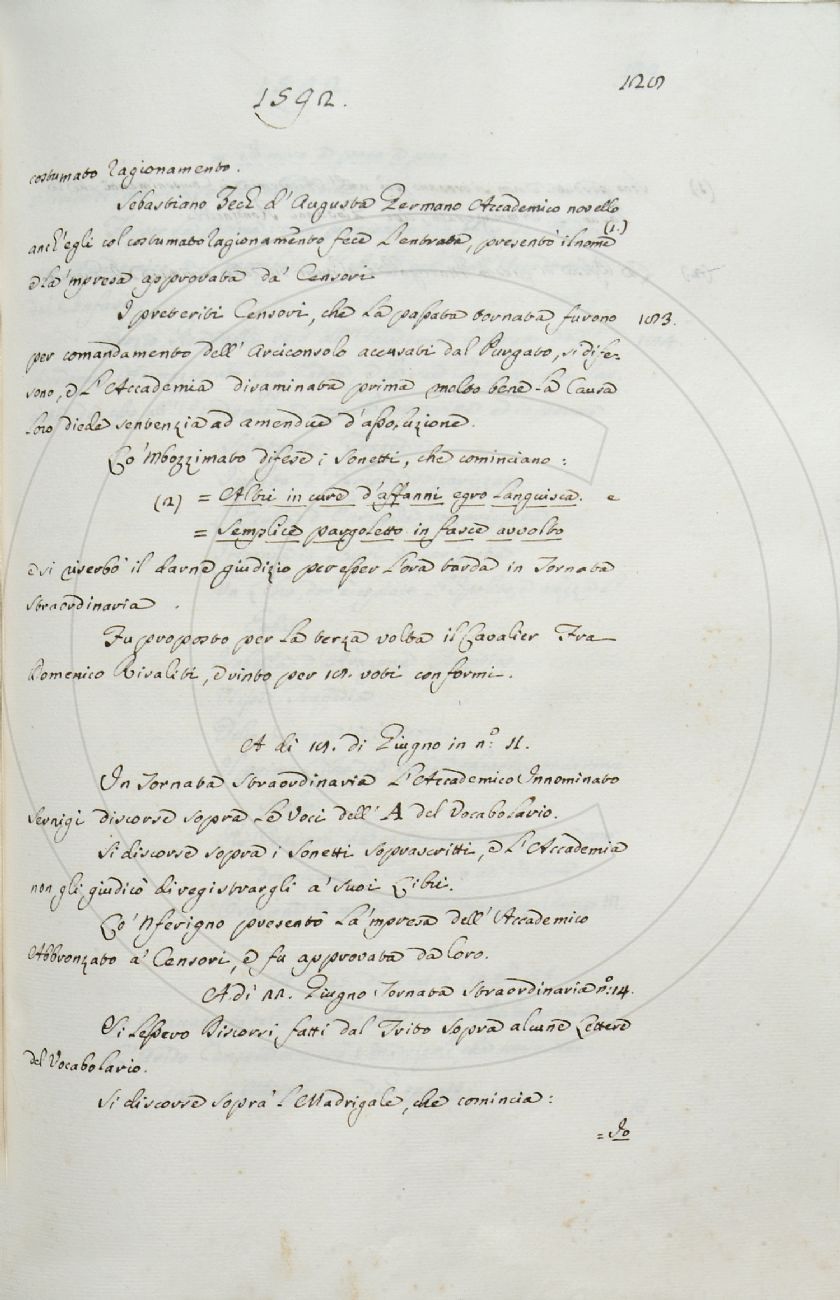 1592.
costumato ragionamento.
Sebastiano Zech d'Augusta Germano Accademico novello
anch'egli col costumato ragionamento fece l'entrata, presentò il nome (1.)
e la 'mpresa approvata da' Censori
I preteriti Censori, che la passata tornata furono
per comandamento dell' Arciconsolo accusati dal Purgato, si dife-
sono, e l'Accademia disaminata prima molto bene la causa
loro diede sentenzia ad amendue d'assoluzione.
Lo 'Mbozzimato difese i sonetti, che cominciano:
(2) = Altri in cure d'affanni egro languisca. e
= Semplice pargoletto in fasce avvolto
e si riserbò il darne giudizio per esser l'ora tarda in Tornata
straordinaria.
Fu proposto per la terza volta il Cavalier Fra
Domenico Rivaliti, e vinto per voti conformi.
A di di Giugno in n.º 11.
In Tornata straordinaria l'Accademico Innominato
Sernigi discorse sopra le voci dell' A del Vocabolario.
Si discorse sopra i sonetti soprascritti, e l'Accademia
non gli giudicò di registrargli a' suoi Libri.
Lo 'Nferigno presentò la 'mpresa dell' Accademico
Abbronzato a' Censori, e fu approvata da loro.
A di 22. Giugno Tornata straordinaria n.º 14.
Si lessero Discorsi fatti dal Trito sopra alcune Lettere
del Vocabolario.
Si discorse sopra 'l Madrigale, che comincia:
= Io